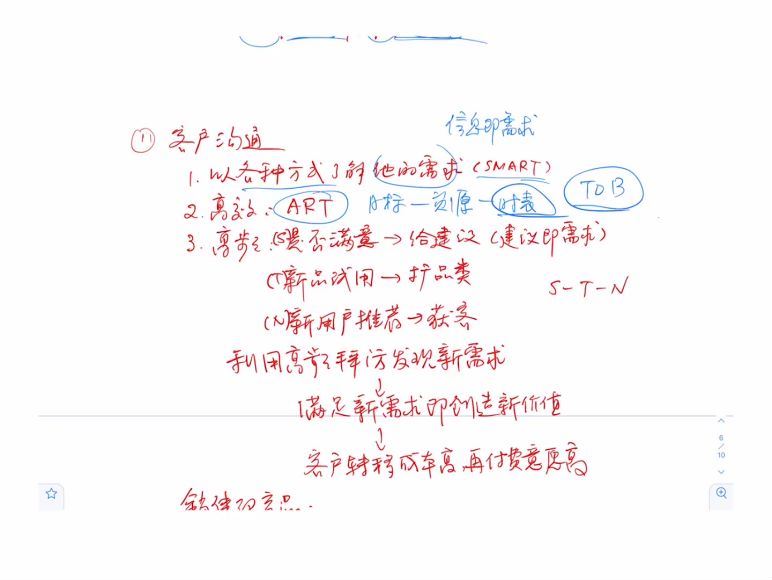 信息即需求
① 客户沟通
1. 以各种方式了解他的需求 (SMART)
2. 高效: ART 目标—资源—时表 TOB
3. 高频: (S)是否满意→给建议 (建议即需求)
(T)新品试用→扩品类 S-T-N
(N)新用户推荐→获客
利用高频拜访发现新需求
↓
满足新需求即创造新价值
↓
客户转移成本高,再付费意愿高
6
/
10